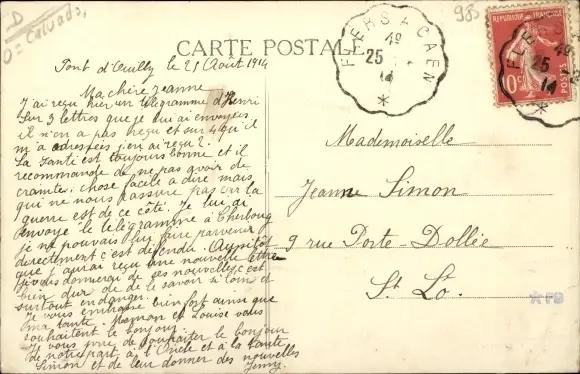 D
O = Calvados,
985
CARTE POSTALE
FLERS A CAEN
25
14
REPUBLIQUE FRANÇAISE
10c
POSTES
Pont d'Ouilly le 21 Août 1914
Ma chère Jeanne
J'ai reçu hier un télégramme d'Henri
Sur 3 lettres que je lui ai envoyées
il n'en a pas reçu et sur 4 qu'il
m'a adressées j'en ai reçu 2.
La santé est toujours bonne et il
recommande de ne pas avoir de
craintes; chose facile à dire mais
qui ne nous rassure pas car la
guerre est de ce côté. Je lui ai
envoyé le télégramme à Cherbourg
je ne pouvais lui faire parvenir
directement c'est défendu. Aussitôt
que j'aurai reçu une nouvelle lettre
je vous donnerai de ses nouvelles, c'est
bien dur de le savoir si loin et
surtout en danger.
Je vous embrasse bien fort ainsi que
ma tante. Maman et Louise vous
souhaitent le bonjour.
Je vous prie de souhaiter le bonjour
de notre part à l'Oncle et à la tante
Simon et de leur donner des nouvelles
Jenny.
Mademoiselle
Jeanne Simon
9 rue Porte-Dollée
St Lo.